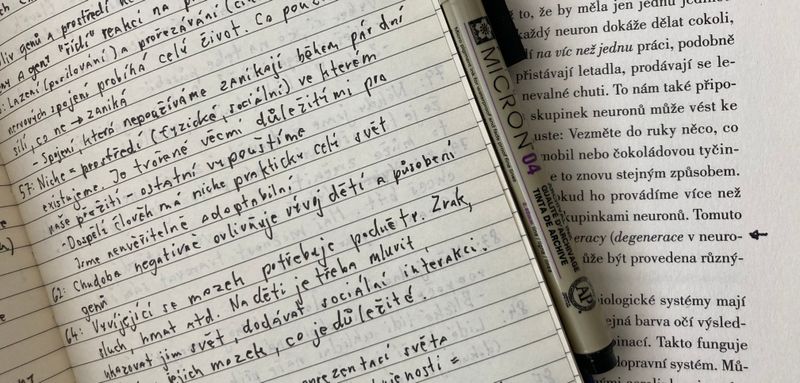 liv genů a prostředí ne
geny "řídí" reakci na p
: Ladění (posilování) a prořezávání (
nervových spojení probíhá celý život. Co použ
sílí, co ne → zaniká
- Spojení, která nepoužíváme zanikají během pár dní
57: Niche = prostředí (fyzické, sociální) ve kterém
existujeme. Je tvořené věcmi důležitými pro
naše přežití - ostatní vypouštíme
- Dospělí člověk má niche prakticky celý svět
Jsme neuvěřitelně adaptabilní
62: Chudoba negativně ovlivňuje vývoj dětí a působení
genů
64: Vyvíjející se mozek potřebuje podněty. Zrak,
sluch, hmat atd. Na děti je třeba mluvit,
ukazovat jim svět, dodávat sociální interakci.
jejich mozek, co je důležité.
prezentací světa
MICRON 04
QUALITÉ D'ARCHIVAGE
TINTA DE ARCHIVE
AP
to, že by měla jen jednu jedineč
každý neuron dokáže dělat cokoli,
í na víc než jednu práci, podobně
přistávají letadla, prodávají se le-
nevalné chuti. To nám také připo-
skupinek neuronů může vést ke
uste: Vezměte do ruky něco, co
mobil nebo čokoládovou tyčin-
e to znovu stejným způsobem.
okud ho provádíme více než
kupinkami neuronů. Tomuto
eracy (degenerace v neuro-
ůže být provedena různý-
iologické systémy mají
ejná barva očí výsled-
binací. Takto funguje
dopravní systém. Mů-